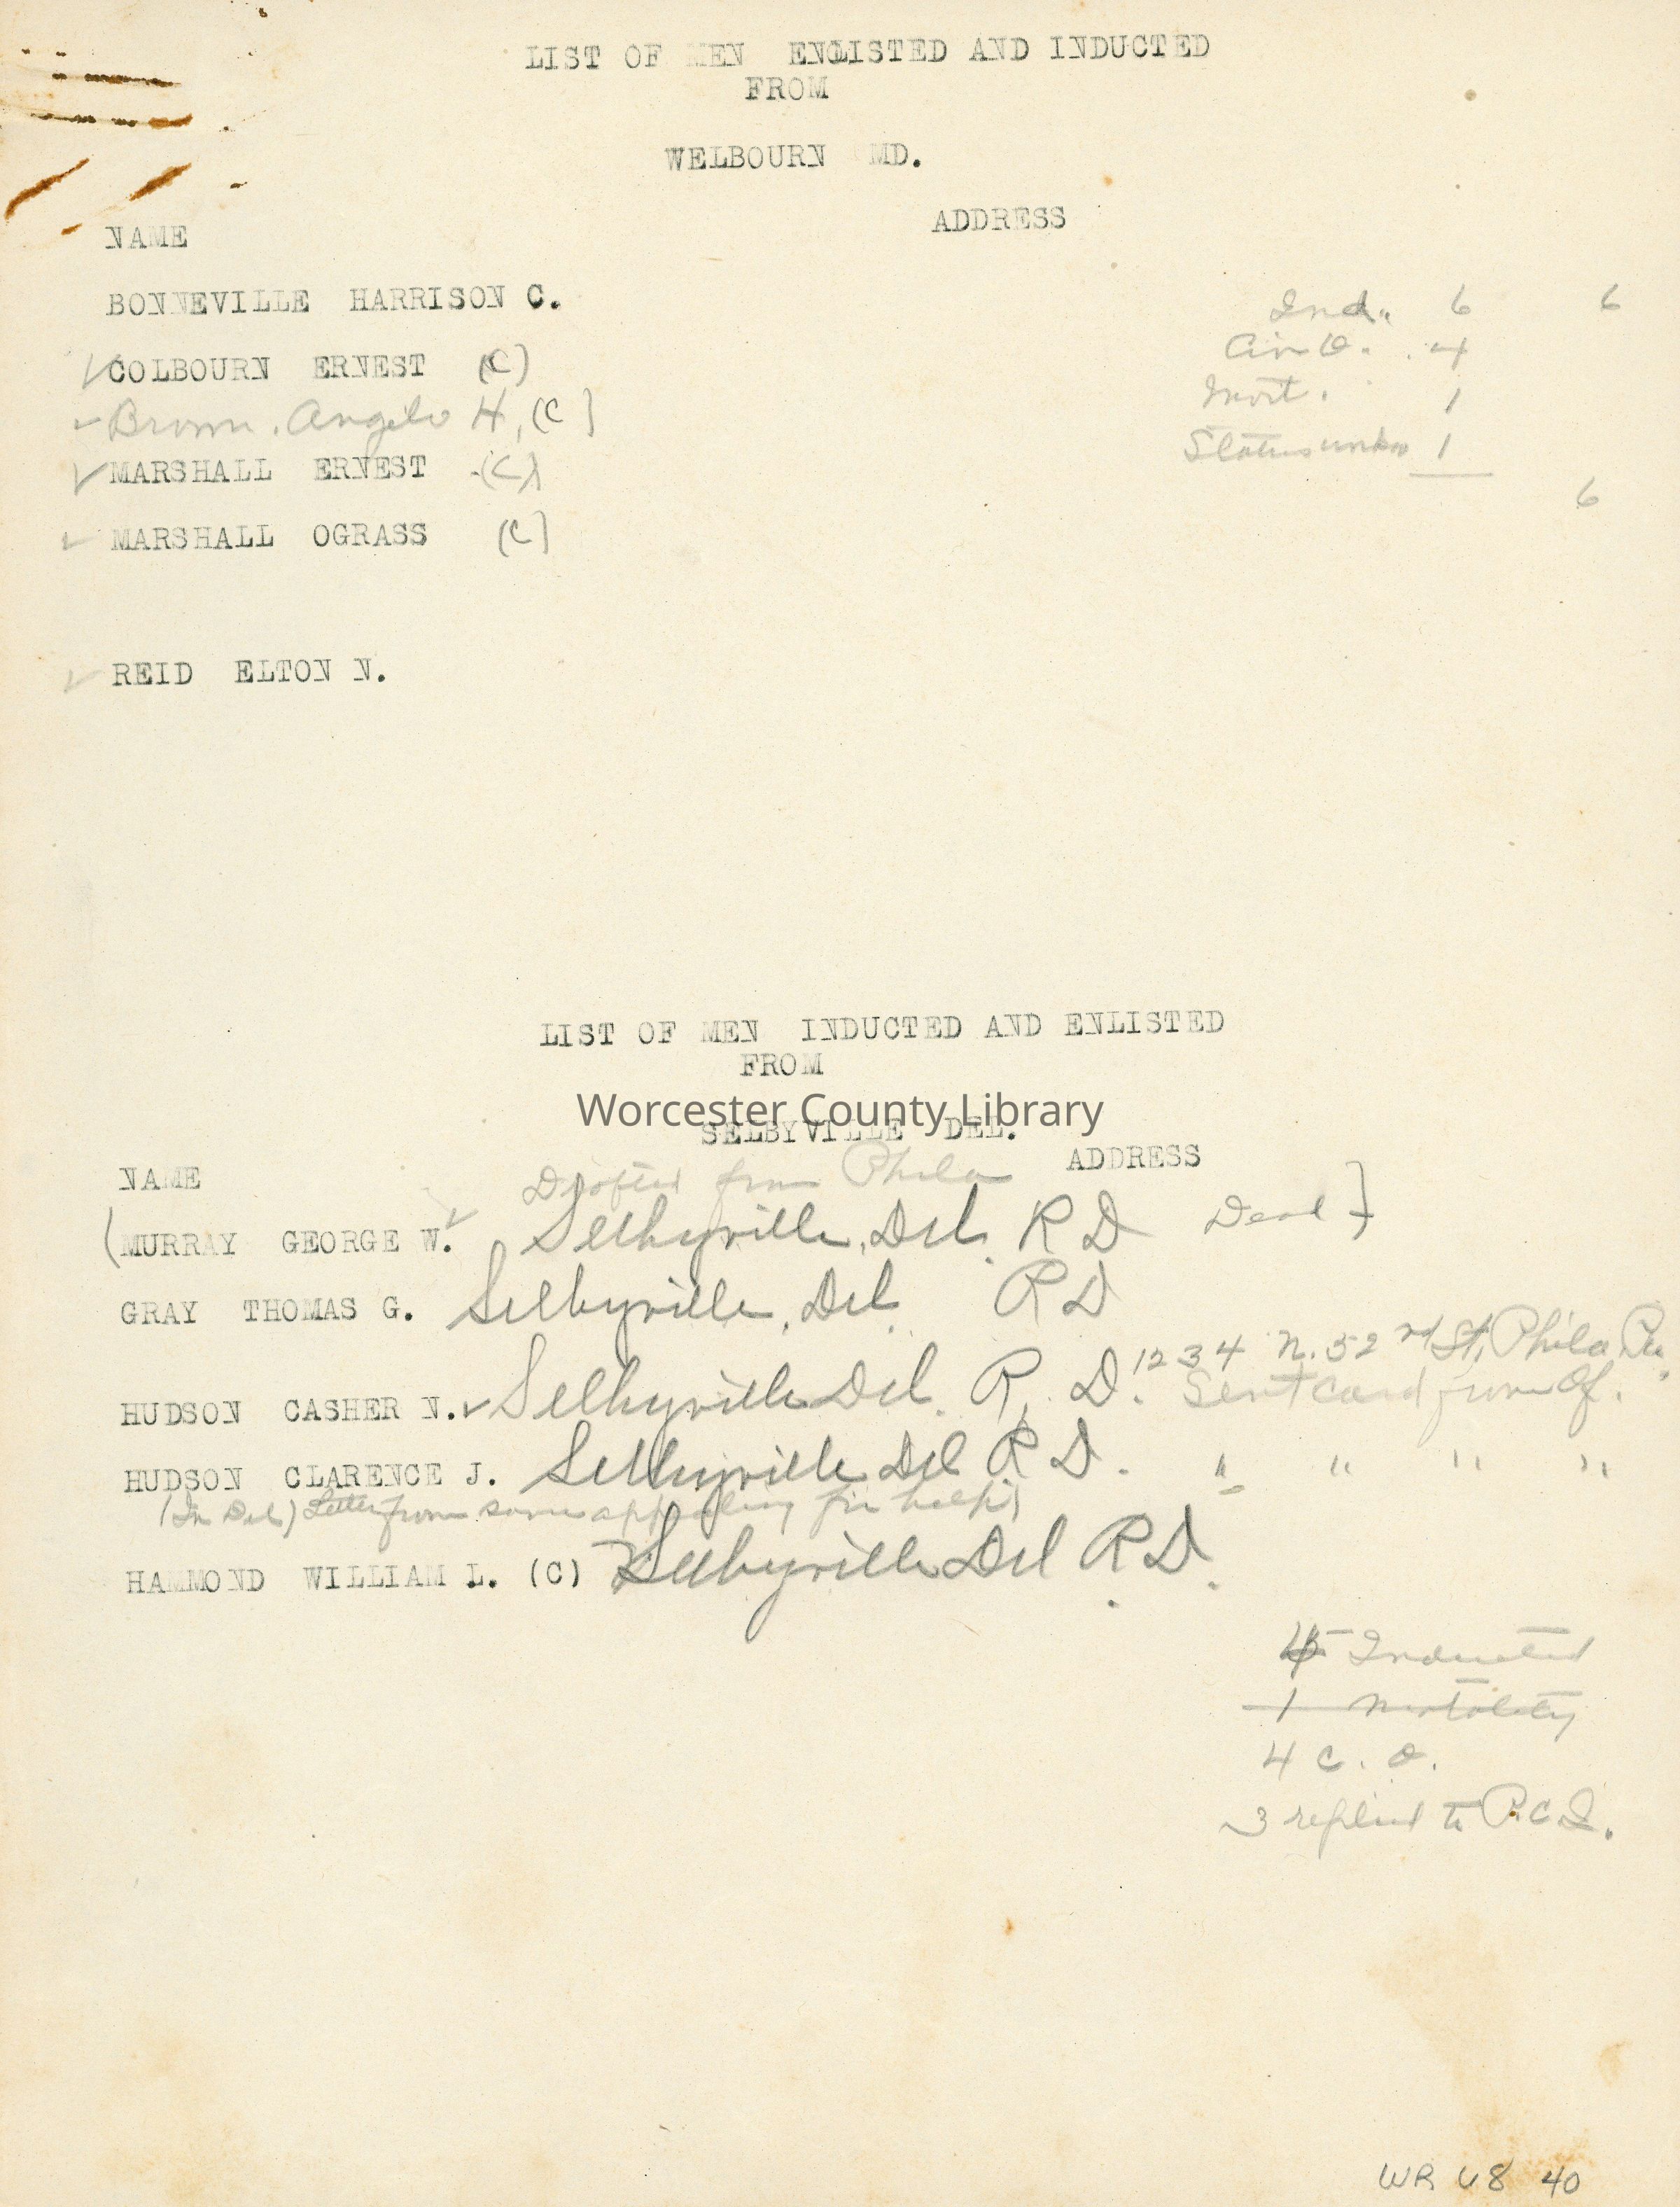 LIST OF MEN ENLISTED AND INDUCTED
FROM
WELBOURN MD.
NAME ADDRESS
BONNEVILLE HARRISON C. Ind. 6 6
✓ COLBOURN ERNEST (C) Civ O. 4
✓ Brown, Angelo H, (C) Mort. 1
✓ MARSHALL ERNEST (C) Status unkn 1
6
✓ MARSHALL OGRASS (C)
✓ REID ELTON N.
LIST OF MEN INDUCTED AND ENLISTED
FROM
Worcester County Library
SELBYVILLE DEL.
NAME ADDRESS
Drafted from Phila
(MURRAY GEORGE W. ✓ Selbyville, Del. R D Dead)
GRAY THOMAS G. Selbyville, Del. R D
1234 N. 52nd St, Phila Pa.
HUDSON CASHER N. ✓ Selbyville Del. R. D. Sent card from Of.
HUDSON CLARENCE J. Selbyville Del R D. " " " "
(In Del) Letter from same appealing for help)
HAMMOND WILLIAM L. (C) Selbyville Del R D.
5 Inducted
1 Mortality
4 C. O.
3 replied to P.C.I.
WR V8 40